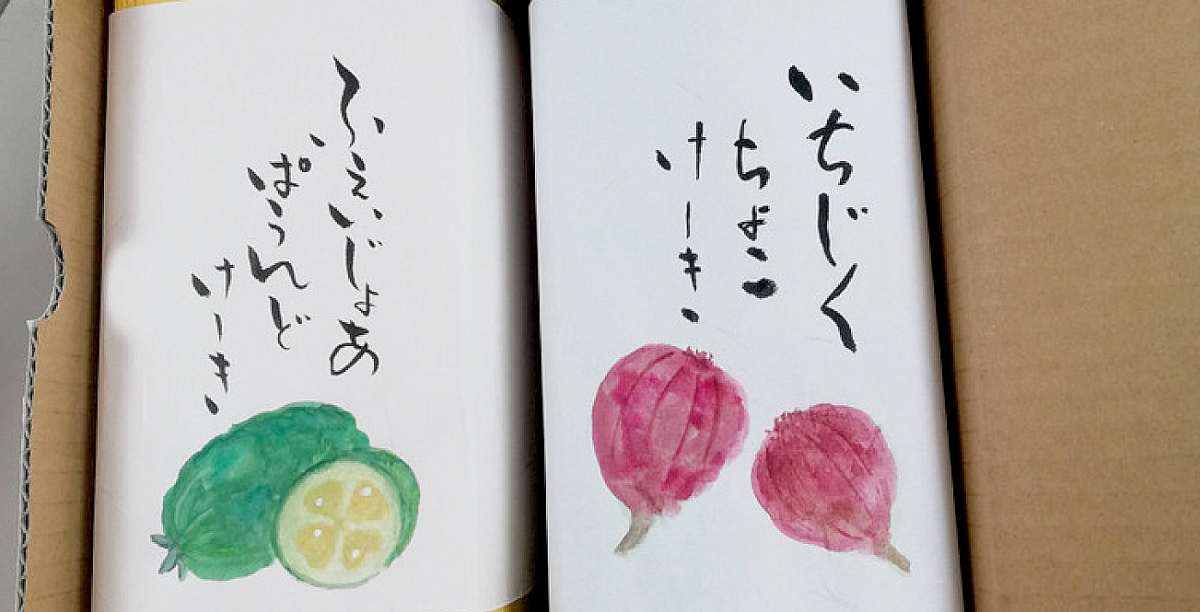 ふぇいじょあ
ぱうんど
けーき
いちじく
ちょこ
けーき